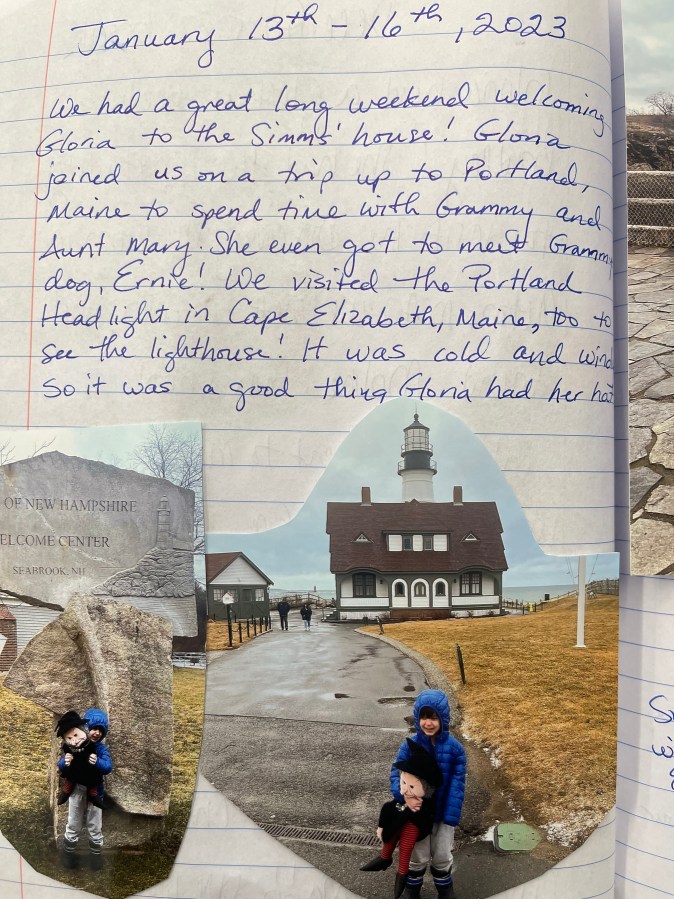 January 13th - 16th, 2023
We had a great long weekend welcoming
Gloria to the Simms' house! Gloria
joined us on a trip up to Portland,
Maine to spend time with Grammy and
Aunt Mary. She even got to meet
dog, Ernie! We visited the Portland
Headlight in Cape Elizabeth, Maine, too to
see the lighthouse! It was cold and
So it was a good thing Gloria had her hat
OF NEW HAMPSHIRE
WELCOME CENTER
SEABROOK, NH